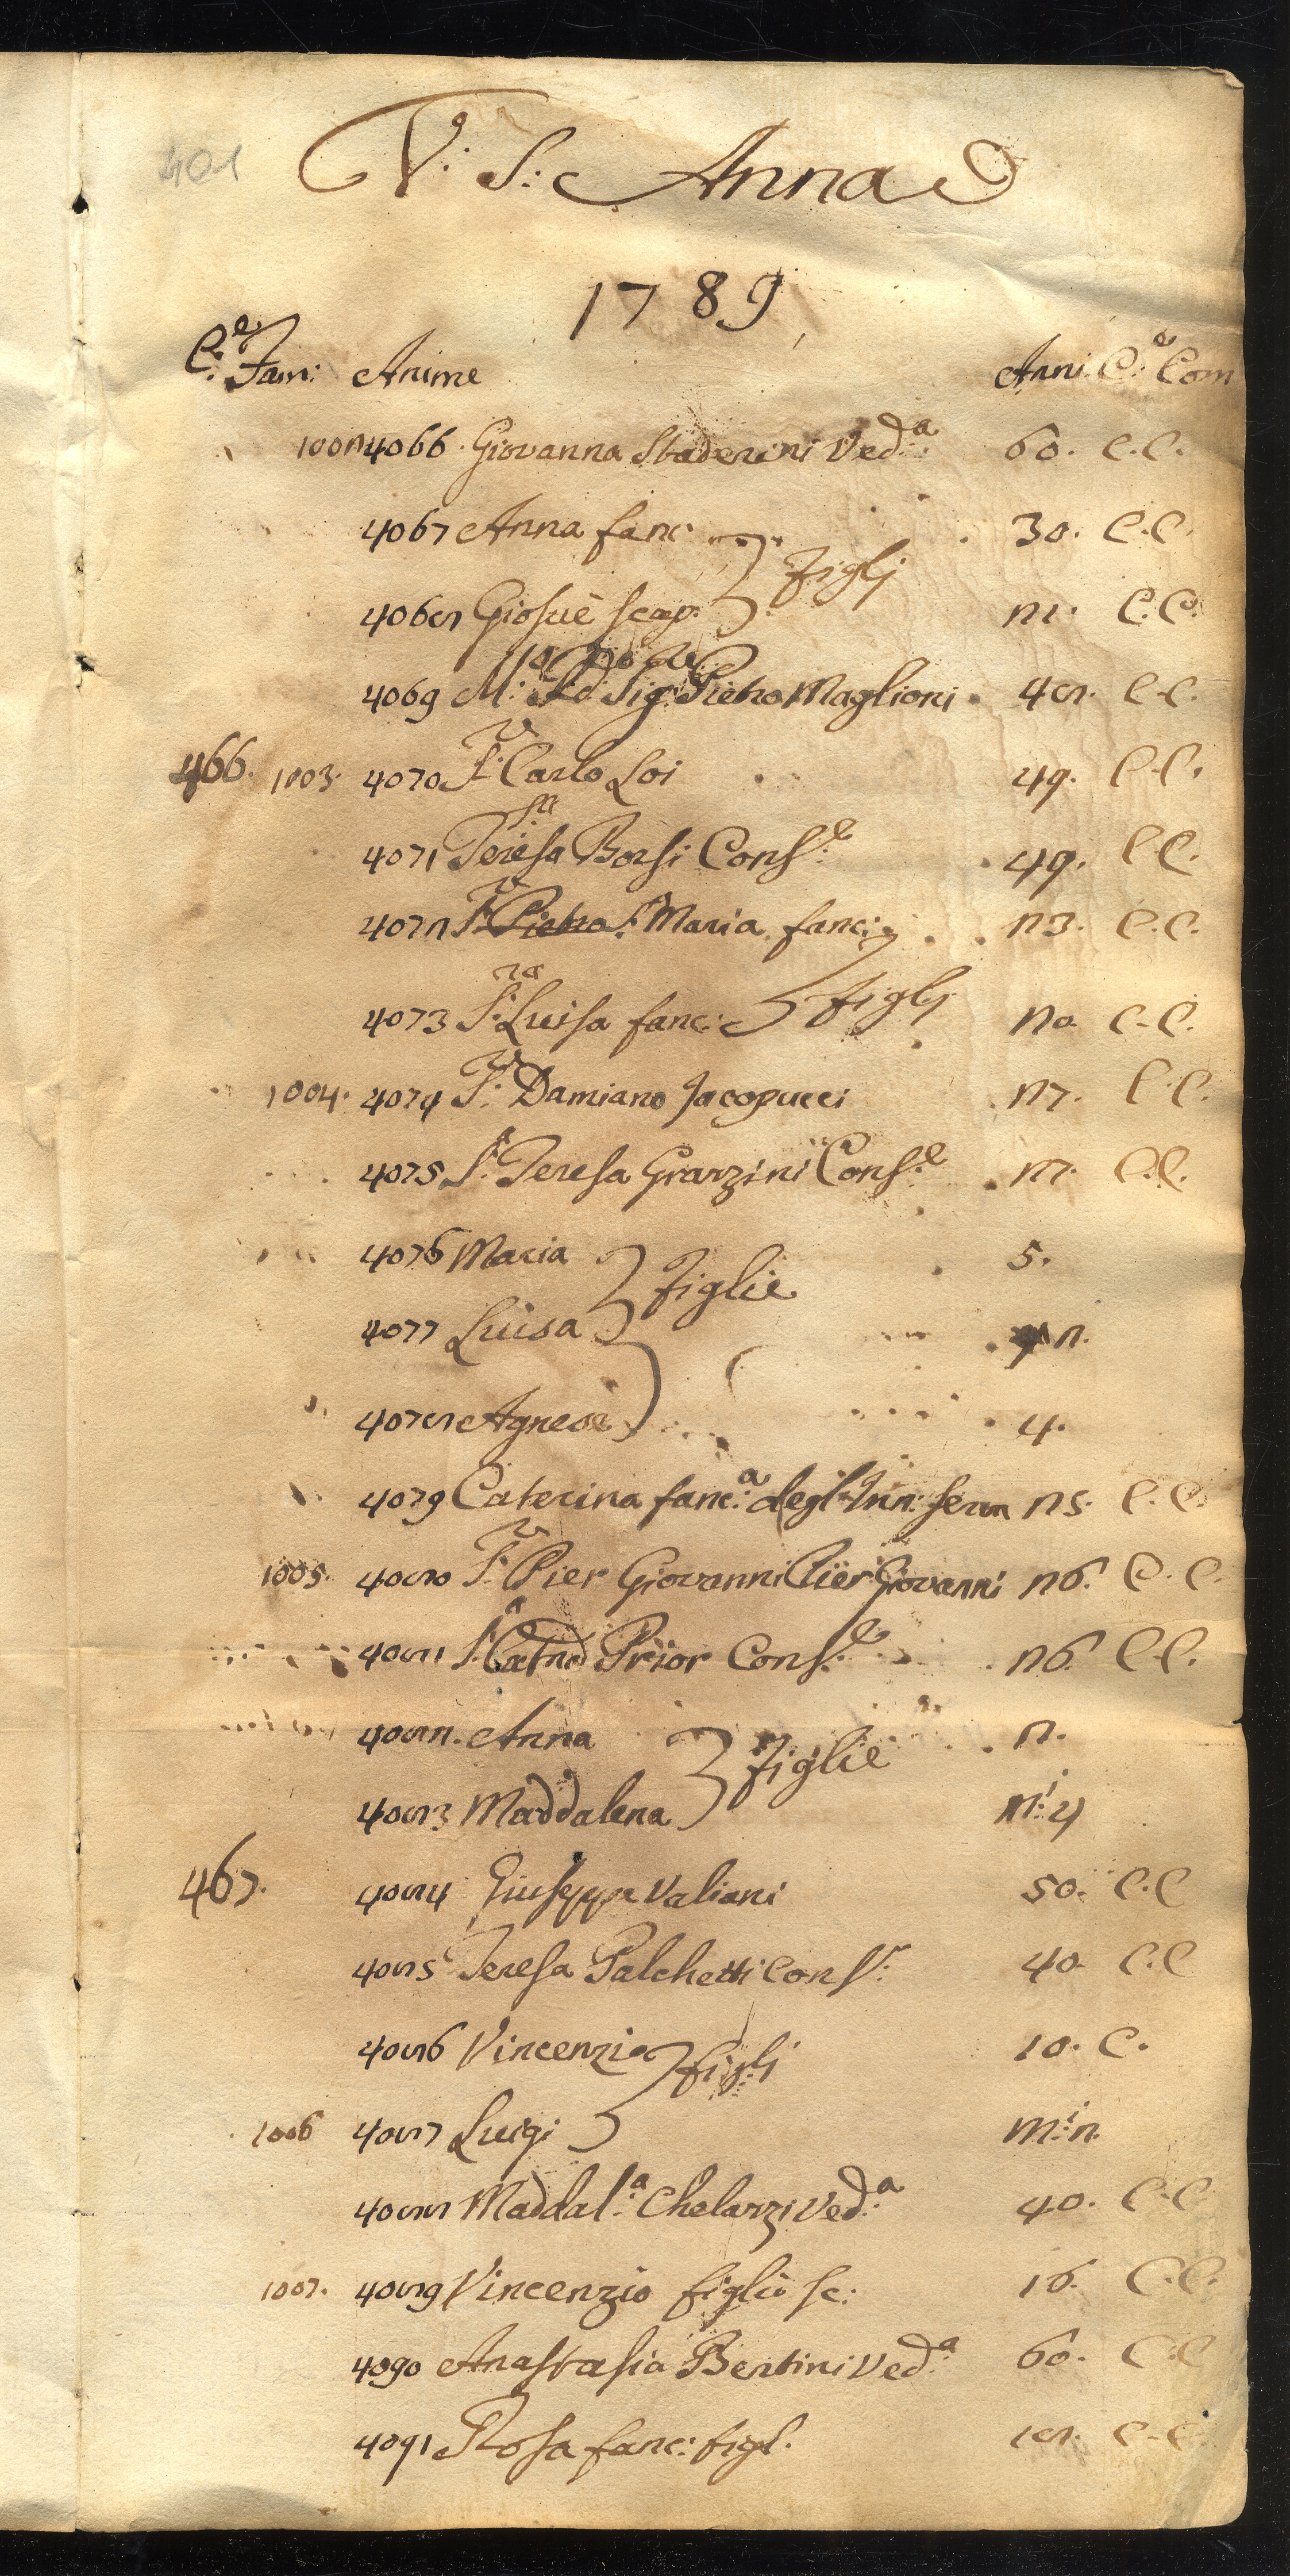 401
V: S: Anna
1789
C:e Fam: Anime Anni C:e Com
1002 4066 Giovanna Staderini Ved:a 60. C.C.
4067 Anna fanc: 30. C.C.
figlj
4068 Giosuè scap: 21. C.C.
4069 M: Rd: Sig: Pietro Maglioni 48. C.C.
466. 1003. 4070 S:r Carlo Loi 49. C.C.
4071 Teresa Borsi Cons:e 49. C.C.
4072 S:r Pietro S:a Maria fanc: 23. C.C.
figlj
4073 S:ra Luisa fanc: 20. C.C.
1004. 4074 S:r Damiano Jacopucci 27. C.C.
4075 S:a Teresa Grazzini Cons:e 27. C.C.
4076 Maria 5.
Figlie
4077 Luisa 2.
4078 Agnese 4.
4079 Caterina fanc:a degl'Inn: serva 25. C.C.
1005. 4080 S:r Pier Giovanni Pier Giovanni 26. C.C.
4081 S:a Catna Prior Cons:e 26. C.C.
4082. Anna 2.
Figlie
4083 Maddalena m:i 4
467. 4084 Giuseppe Valiani 50. C.C
4085 Teresa Palchetti Cons: 40. C.C
4086 Vincenzio 10. C.
figli
1006 4087 Luigi m:i 2.
4088 Maddal:a Chelazzi Ved:a 40. C.C.
1007. 4089 Vincenzio figlio sc: 16. C.C.
4090 Anastasia Bertini Ved:a 60. C.C
4091 Rosa fanc: figl. 18. C.C.